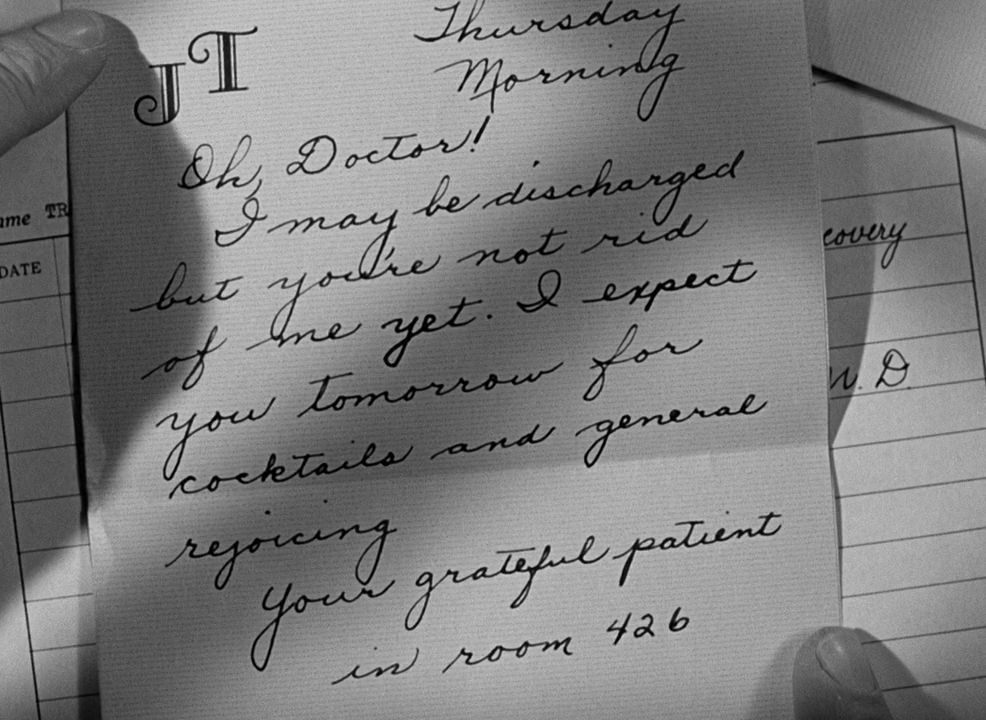 JT
Thursday
Morning
Oh, Doctor!
I may be discharged
but you're not rid
of me yet. I expect
you tomorrow for
cocktails and general
rejoicing
Your grateful patient
in room 426
ame TR
DATE
covery
D.